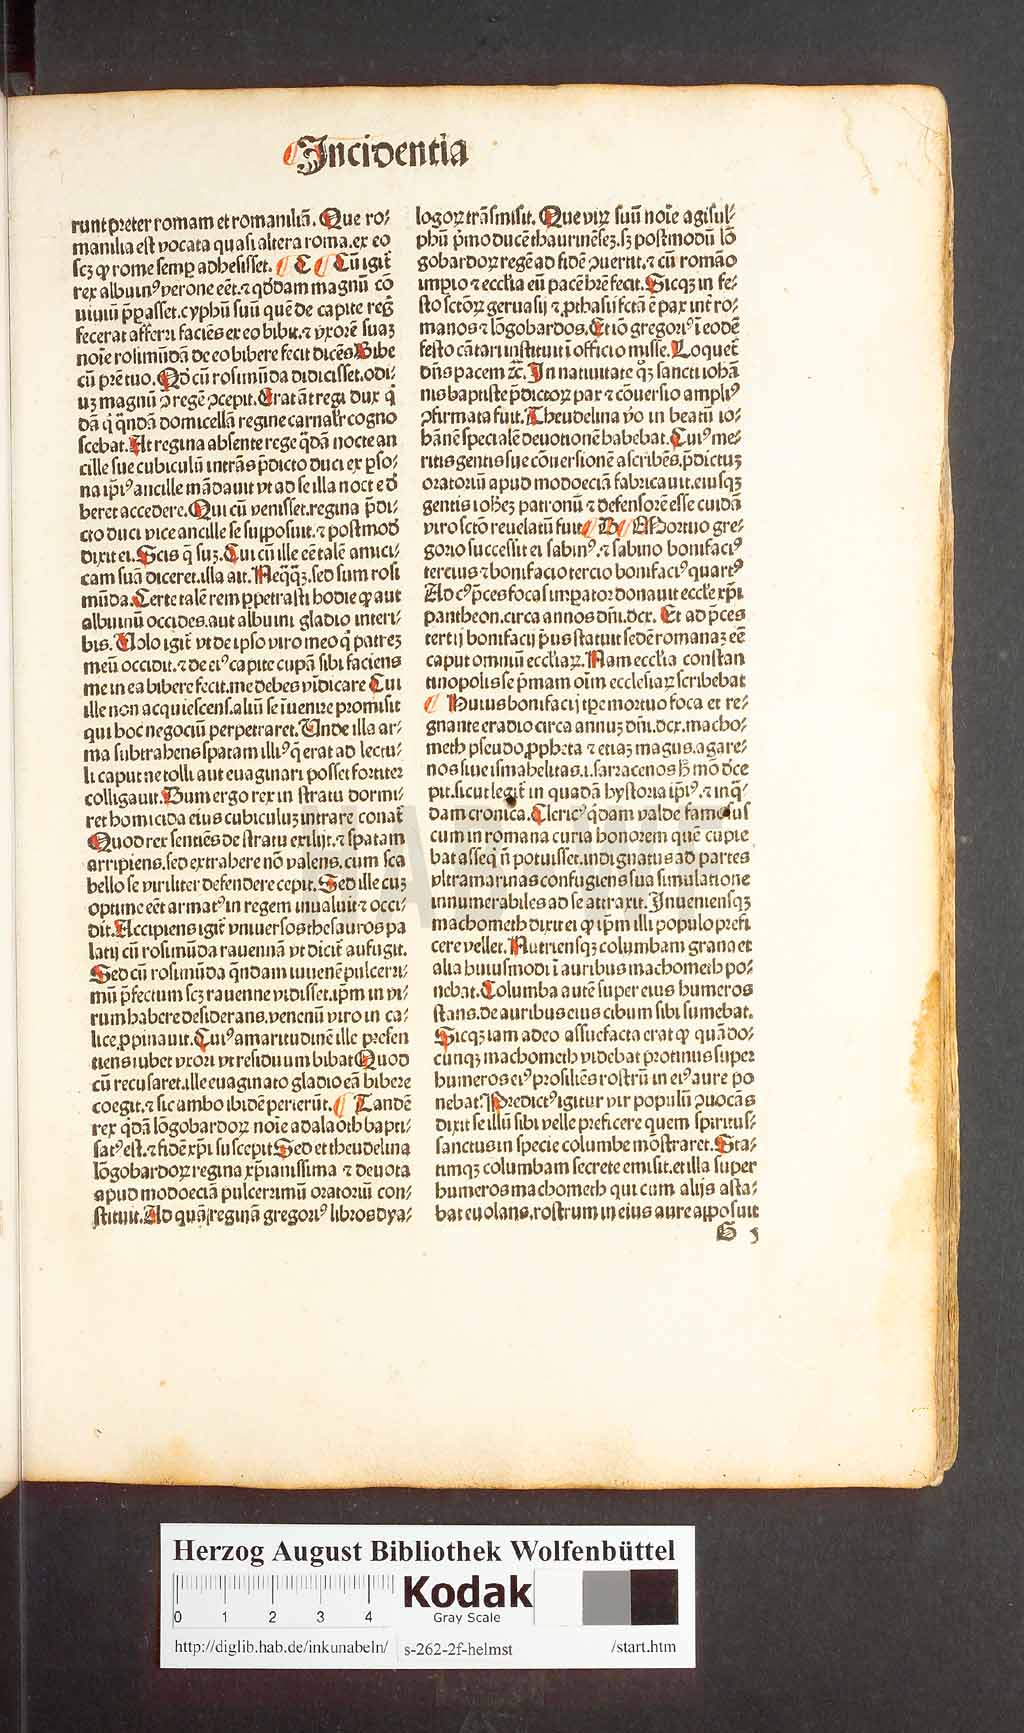 Incidentia
runt preter romam et romaniliā. Que ro⸗
manilia est vocata quasi altera roma. ex eo
scʒ ꝙ rome semꝑ adhesisset. C Cū igit̄
rex albuinꝰ verone eēt. ⁊ qd̓dam magnū cō
uiuiū p̄ꝑasset. cyphū suū quē de capite reḡ
fecerat afferri faciēs ex eo bibit. ⁊ vxorē suaʒ
noīe rosimūdā de eo bibere fecit dicēs Bibe
cū pr̄e tuo. Qd̓ cū rosimūda didicisset. odi⸗
uʒ magnū ꝯ regē ꝯcepit. Erat āt regi dux q̄
dā q̇ q̄ndā domicellā regine carnalr̄ cogno
scebat. At regina absente rege q̄dā nocte an
cille sue cubiculū intrās p̄dicto duci ex ꝑso⸗
na ip̄iꝰ ancille mādauit vt ad se illa nocte d̓
beret accedere. Qui cū venisset. regina p̄di⸗
cto duci vice ancille se supposuit. ⁊ postmod̓
dixit ei. Scis q̄ suʒ. Cui cū ille eē talē amici⸗
cam suā diceret. illa ait. Neq̄q̄ʒ. sed sum rosi
mūda. Certe talē rem ꝑpetrasti hodie ꝙ aut
albuinū occides. aut albuini gladio interi⸗
bis. Uolo igit̄ vt de ipso viro meo q̇ patreʒ
meū occidit. ⁊ de eiꝰ capite cupā sibi faciens
me in ea bibere fecit. me debes vīdicare Cui
ille non acquiescens. aliū se īuenire promisit
qui hoc negociū perpetraret. Unde illa ar⸗
ma subtrahens spatam illiꝰ q̄ erat ad lectu⸗
li caput ne tolli aut euaginari posset fortiter
colligauit. Dum ergo rex in stratu dormi⸗
ret homicida eius cubiculuʒ intrare conat̄
Quod rex sentiēs de stratu exilijt. ⁊ spatam
arripiens. sed extrahere nō valens. cum sca
bello se viriliter defendere cepit. Sed ille cuʒ
optime eēt armatꝰ in regem inualuit ⁊ occi⸗
dit. Accipiens igit̄ vniuersos thesauros pa
latij cū rosimūda rauennā vt dicit̄ aufugit.
Sed cū rosimūda q̄ndam iuuenē pulcerri⸗
mū p̄fectum scʒ rauenne vidisset. ip̄m in vi⸗
rum habere desiderans. venenū viro in ca⸗
lice ꝓpinauit. Cuiꝰ amaritudinē ille presen
tiens iubet vxori vt residuum bibat Quod
cū recusaret. ille euaginato gladio eā bibere
coegit. ⁊ sic ambo ibidē perierūt. Tandē
rex q̄dā lōgobardoꝝ noīe adalaoth bapti⸗
satꝰ est. ⁊ fidē xp̄i suscepit Sed et theudelina
lōgobardoꝝ regina xp̄ianissima ⁊ deuota
apud modoeciā pulcerrimū oratoriū con⸗
stituit. Ad quā reginā gregoriꝰ libros dya⸗
logoꝝ trāsmisit. Que viꝝ suū noīe agisul⸗
phū p̄mo ducē thaurinēseʒ. sʒ postmodū lō
gobardoꝝ regē ad fidē ꝯuertit. ⁊ cū romāo
imꝑio ⁊ ecclīa eū pacē hr̄e fecit. Sicqʒ in fe⸗
sto sctōꝝ geruasij ⁊ ꝓthasij fctā ē pax int̄ ro⸗
manos ⁊ lōgobardos. Et iō gregoriꝰ ī eodē
festo cātari instituit ī officio misse. Loquet̄
dn̄s pacem ⁊c̄. In natiuitate q̊ʒ sancti iohā
nis baptiste p̄dictoꝝ pax ⁊ cōuersio ampliꝰ
ꝯfirmata fuit. Theudelina v̓o in beatū io⸗
hānē specialē deuotionē habebat. Cuiꝰ me⸗
ritis gentis sue cōuersionē ascribēs. p̄dictuʒ
oratoriū apud modoeciā fabricauit. eiusqʒ
gentis ioh̓eʒ patronū ⁊ defensorē esse cuidā
viro sctō reuelatū fuit D Mortuo gre⸗
gorio successit ei sabinꝰ. ⁊ sabino bonifaciꝰ
tercius ⁊ bonifacio tercio bonifaciꝰ quartꝰ
Ad cꝰ p̄ces focas imꝑator donauit eccl̄e xp̄i
pantheon. circa annos dn̄i. dcx. Et ad p̄ces
tertij bonifacij p̄us statuit sedē romanaʒ eē
caput omniū eccl̄iaꝝ. Nam eccl̄ia constan
tinopolis se p̄mam oīm ecclesiaꝝ scribebat
Huius bonifacij tꝑe mortuo foca et re⸗
gnante eradio circa annuʒ dn̄i. dcx. macho⸗
meth pseudo ꝓpheta ⁊ etiaʒ magus. agare⸗
nos siue ismahelitas. i. sarracenos h̄ mō d̓ce
pit. sicut legit̄ in quadā hystoria ip̄iꝰ. ⁊ in q̄⸗
dam cronica. Clericꝰ q̇dam valde famosus
cum in romana curia honorem quē cupie
bat asseq̇ n̄ potuisset. indignatus ad partes
vltramarinas confugiens sua simulatione
innumerabiles ad se attraxit. Inueniensqʒ
machometh dixit ei ꝙ ip̄m illi populo prefi
cere vellet. Nutriensqʒ columbam grana et
alia huiusmodi ī auribus machometh po⸗
nebat. Columba autē super eius humeros
stans. de auribus eius cibum sibi sumebat.
Sicqʒ iam adeo assuefacta erat ꝙ quādo⸗
cūnqʒ machometh videbat protinus super
humeros eiꝰ prosiliēs rostrū in eiꝰ aure po
nebat. Predictꝰ igitur vir populū ꝯuocās
dixit se illū sibi velle preficere quem spiritus⸗
sanctus in specie columbe mōstraret. Sta⸗
timqʒ columbam secrete emisit. et illa super
humeros machometh qui cum alijs asta⸗
bat euolans. rostrum in eius aure apposuit
G 3
HAB WF
Herzog August Bibliothek Wolfenbüttel
0 1 2 3 4
Kodak
Gray Scale
http://diglib.hab.de/inkunabeln/ s-262-2f-helmst /start.htm